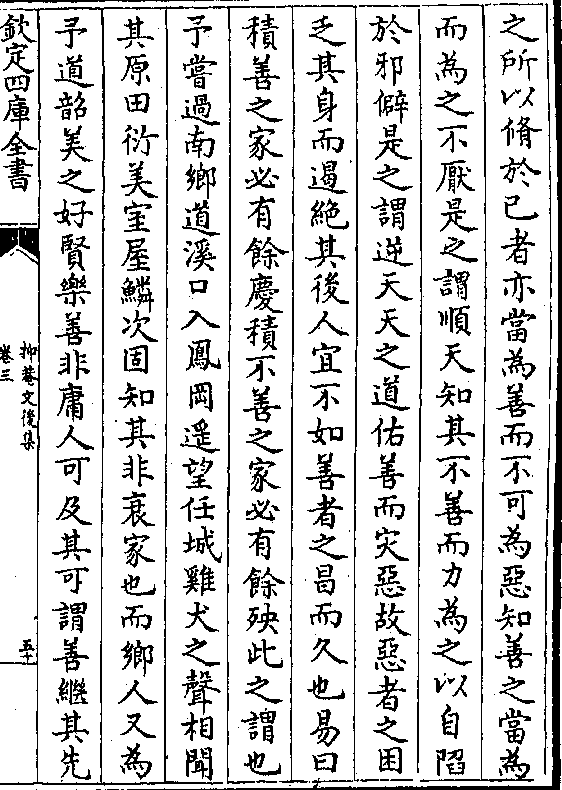 之所以脩於已者亦當為善而不可為惡知善之當為
而為之不厭是之謂順天知其不善而力為之以自陷
於邪僻是之謂逆天天之道佑善而灾惡故惡者之困
乏其身而遏絶其後人宜不如善者之昌而久也易曰
積善之家必有餘慶積不善之家必有餘殃此之謂也
予嘗過南鄉道溪口入鳳岡遥望任城雞犬之聲相聞
其原田衍美室屋鱗次固知其非衰家也而鄉人又為
予道韶美之好賢樂善非庸人可及其可謂善繼其先
欽定四庫全書
抑菴文後集
卷三
五十